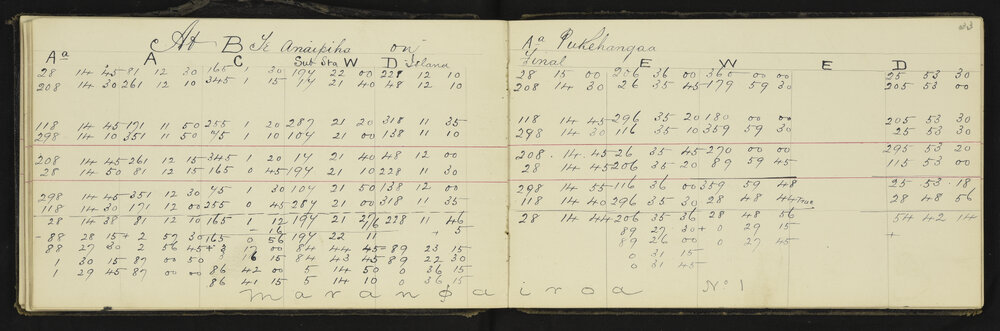 At B Te Anaipiha on
Aa A C Sub Sta W D Island
28 14 45 81 12 30 165 1 30 194 22 00 228 12 10
208 14 30 261 12 10 345 1 15 14 21 40 48 12 10
118 14 45 171 11 50 255 1 20 287 21 20 318 11 35
298 14 10 351 11 50 75 1 10 104 21 00 138 11 10
208 14 45 261 12 15 345 1 20 14 21 40 48 12 00
28 14 50 81 12 15 165 0 45 194 21 10 228 11 30
298 14 45 351 12 30 75 1 30 104 21 50 138 12 00
118 14 30 171 12 00 255 0 45 284 21 00 318 11 35
28 14 38 81 12 10 165 1 12 194 21 27 228 11 46
- 16 + 5
- 88 28 15 + 2 57 30 165 0 56 194 22 11
88 27 30 2 56 45 + 3 17 00 84 44 45 = 89 23 15
1 30 15 87 00 50 3 16 15 84 43 45 89 22 30
1 29 45 87 00 00 86 42 00 5 14 50 0 36 15
86 41 15 5 14 10 0 36 15
33
Aa Pukehangaa
Final E W E D
28 15 00 206 36 00 360 00 00 25 53 30
208 14 30 26 35 45 179 59 30 205 53 00
118 14 45 296 35 20 180 00 00 205 53 30
298 14 30 116 35 10 359 59 30 25 53 30
208 14 45 26 35 45 270 00 00 295 53 20
28 14 45 206 35 20 89 59 45 115 53 00
298 14 55 116 36 00 359 59 48 25 53 18
118 14 40 296 35 30 28 48 44 True 28 48 56
28 14 44 206 35 36 28 48 56 54 42 14
89 27 30 + 0 29 15 +
89 26 00 0 27 45
0 31 15
0 31 45
Marangairoa No 1